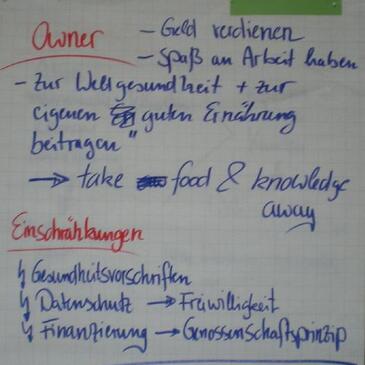 Owner - Geld verdienen
- Spaß an Arbeit haben
- Zur Weltgesundheit + zur
eigenen guten Ernährung
beitragen"
→ take food & knowledge
away
Einschränkungen
↳ Gesundheitsvorschriften
↳ Datenschutz → Freiwilligkeit
↳ Finanzierung → Genossenschaftsprinzip